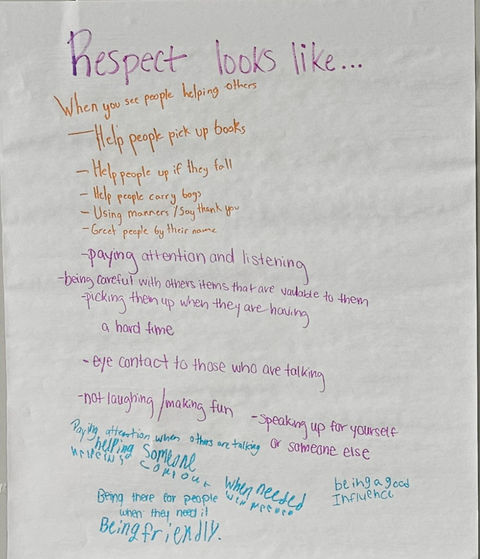 Respect looks like...
When you see people helping others
- Help people pick up books
- Help people up if they fall
- Help people carry bags
- Using manners / Say thank you
- Greet people by their name
- paying attention and listening
- being careful with others items that are valuable to them
- picking them up when they are having
a hard time
- eye contact to those who are talking
- not laughing / making fun
- speaking up for yourself
or someone else
Paying attention when others are talking
helping someone
when needed
Being there for people
when they need it
Being friendly.
being a good
Influence